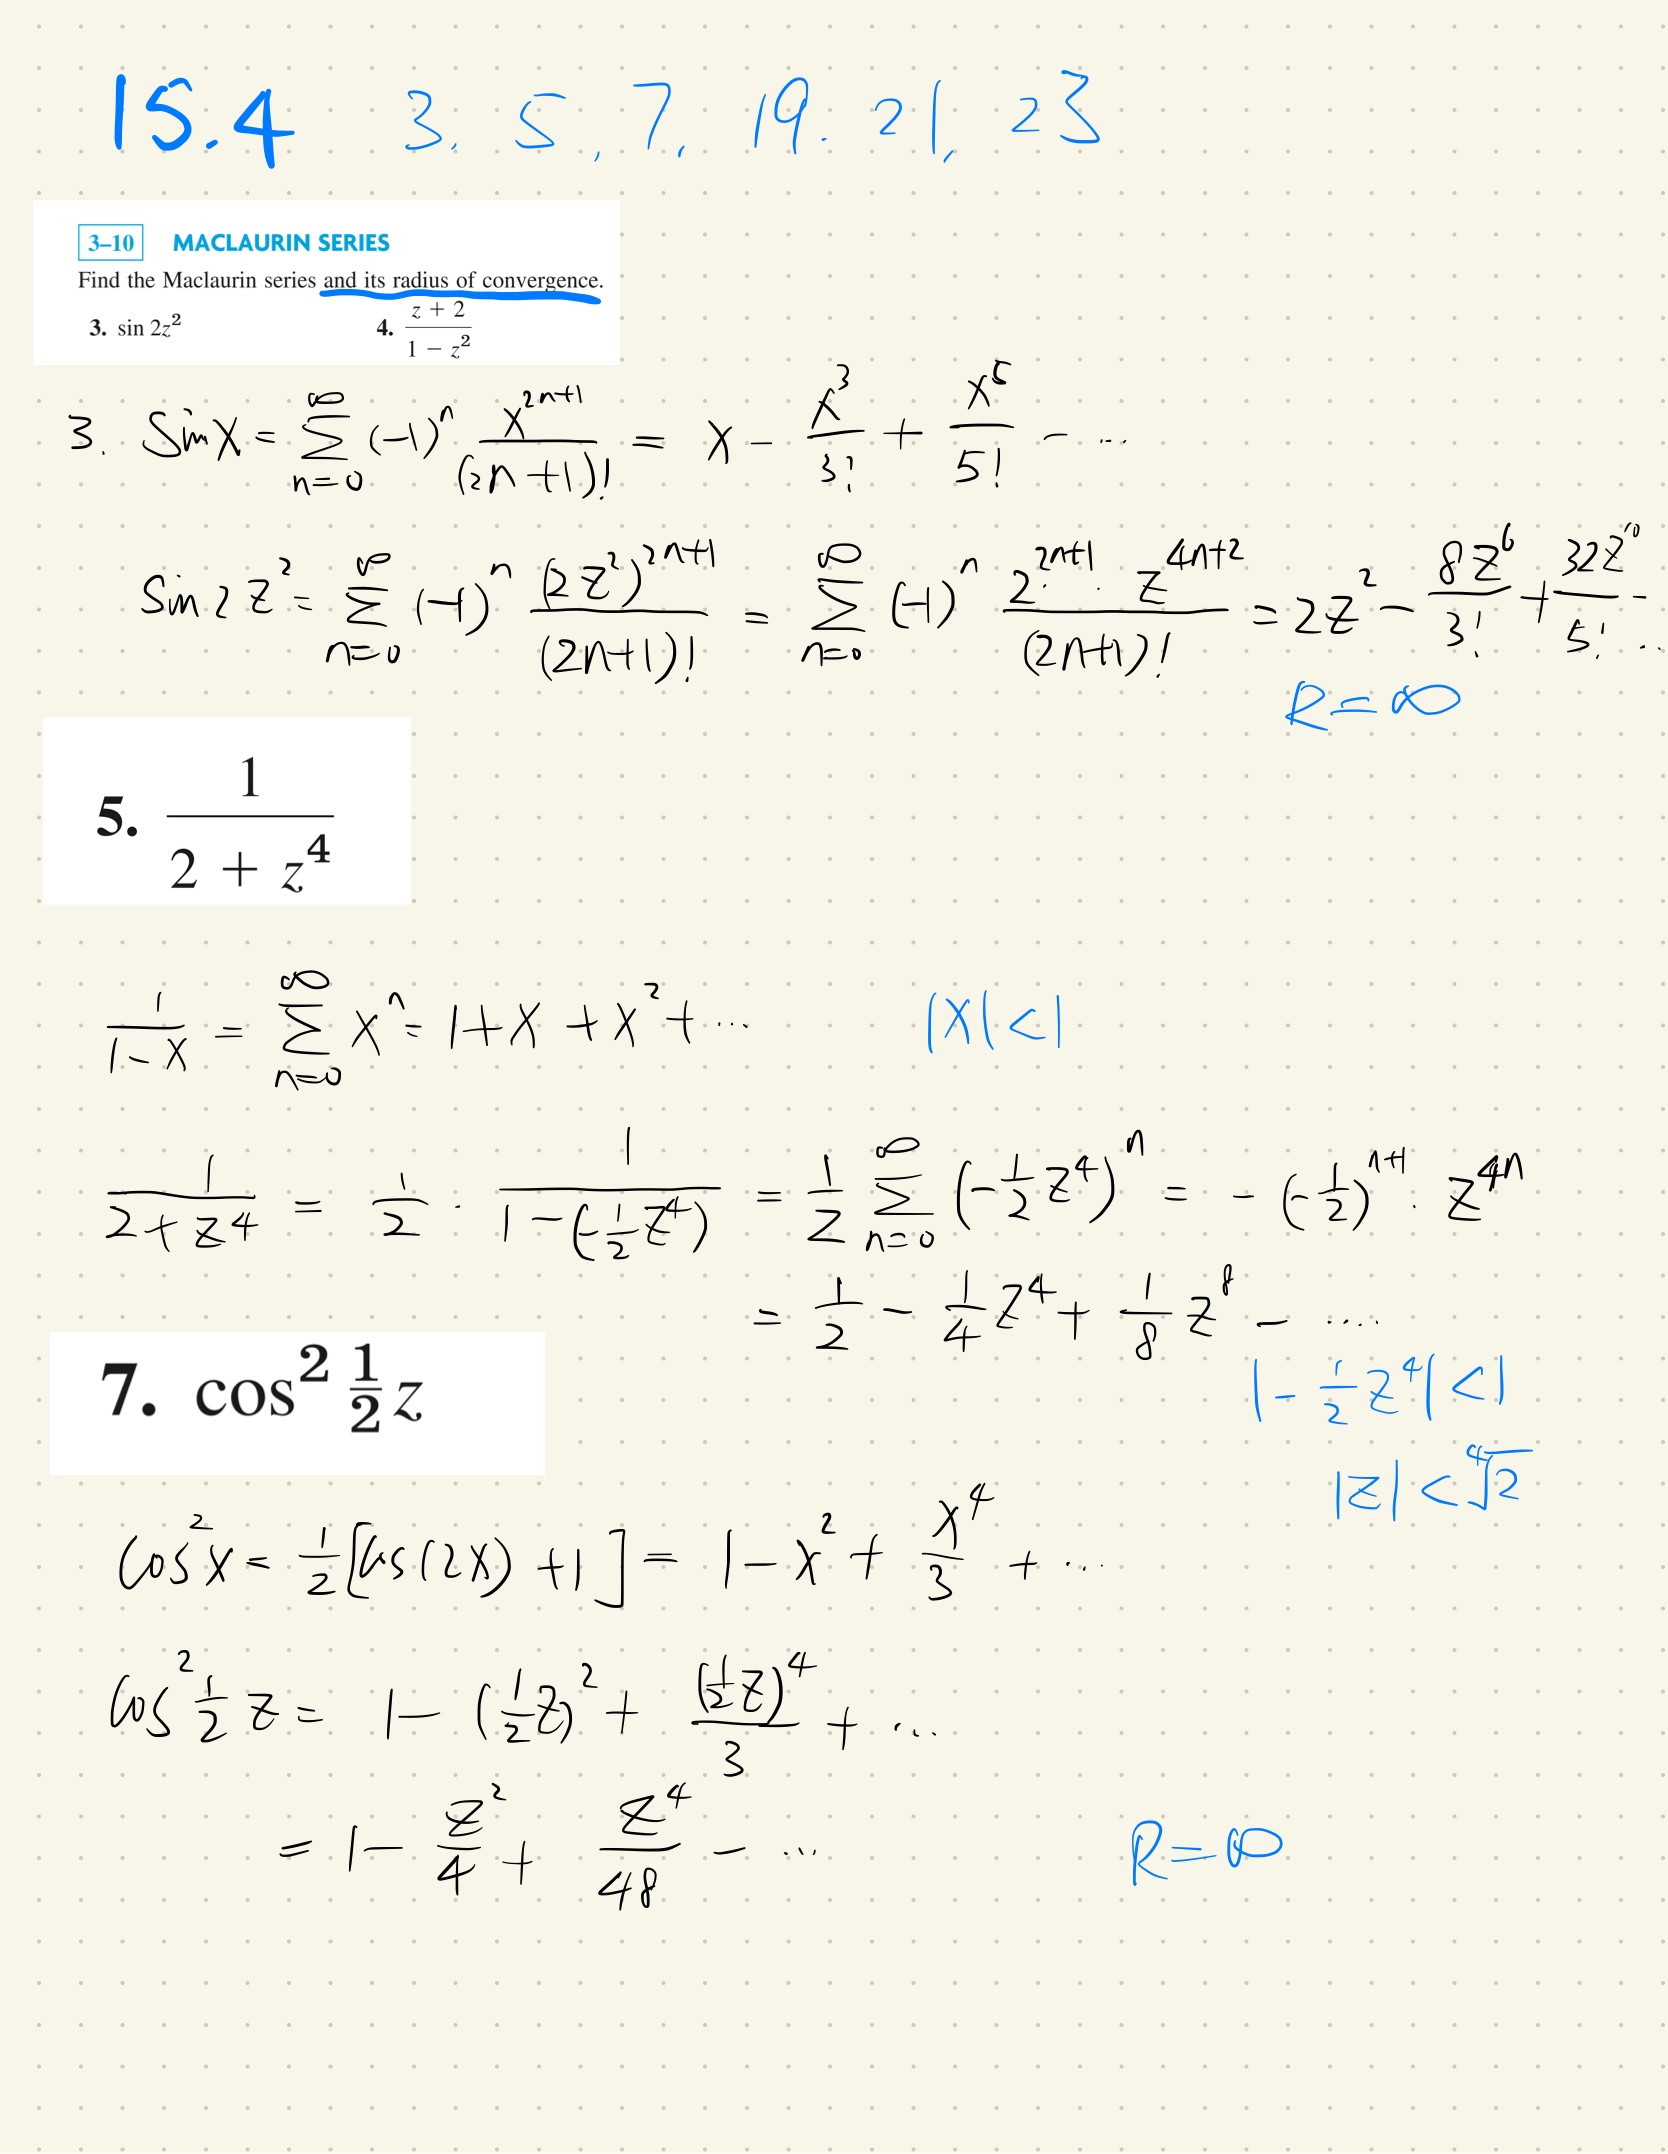 15.4 3. 5, 7, 19. 21, 23
3–10 MACLAURIN SERIES
Find the Maclaurin series and its radius of convergence.
3. sin 2z² 4. (z + 2)/(1 − z²)
3. Sin x = ∑_{n=0}^{∞} (-1)^n x^{2n+1}/(2n+1)! = x - x³/3! + x⁵/5! - ...
Sin 2z² = ∑_{n=0}^{∞} (-1)^n (2z²)^{2n+1}/(2n+1)! = ∑_{n=0}^{∞} (-1)^n 2^{2n+1} · z^{4n+2}/(2n+1)! = 2z² - 8z⁶/3! + 32z¹⁰/5! - ...
R = ∞
5. 1/(2 + z⁴)
1/(1-x) = ∑_{n=0}^{∞} x^n = 1+x+x²+... |x|<1
1/(2+z⁴) = 1/2 · 1/(1-(-1/2 z⁴)) = 1/2 ∑_{n=0}^{∞} (-1/2 z⁴)^n = -(-1/2)^{n+1} · z^{4n}
= 1/2 - 1/4 z⁴ + 1/8 z⁸ - ....
7. cos² ½ z
|-1/2 z⁴| < 1
|z| < ∜2
Cos²x = 1/2 [cos(2x) +1] = 1 - x² + x⁴/3 + ...
Cos² 1/2 z = 1 - (1/2 z)² + (1/2 z)⁴/3 + ...
= 1 - z²/4 + z⁴/48 - ... R = ∞